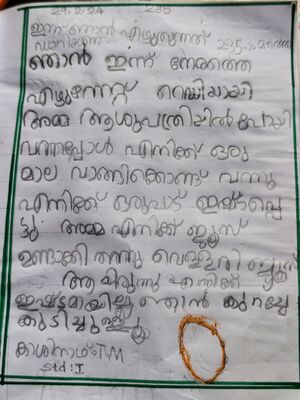 29.2.24 235
ഇന്ന് ഞാൻ എഴുതുന്നത് 235-ാമത്തെ
ഡയറിയാണ്
ഞാൻ ഇന്ന് നേരത്തെ
എഴുന്നേറ്റ് റെഡിയായി
അമ്മ ആശുപത്രിയിൽ പോയി
വന്നപ്പോൾ എനിക്ക് ഒരു
മാല വാങ്ങിക്കൊണ്ട് വന്നു
എനിക്ക് ഒരുപാട് ഇഷ്ടപ്പെ
ട്ടു അമ്മ എനിക്ക് ജ്യൂസ്
ഉണ്ടാക്കി തന്നു വെള്ളരി ജ്യൂസ്
ആയിരുന്നു എനിക്ക്
ഇഷ്ടമായില്ല ഞാൻ കുറച്ചേ
കുടിച്ചുള്ളൂ
കാശിനാഥ്.T.M
std: I